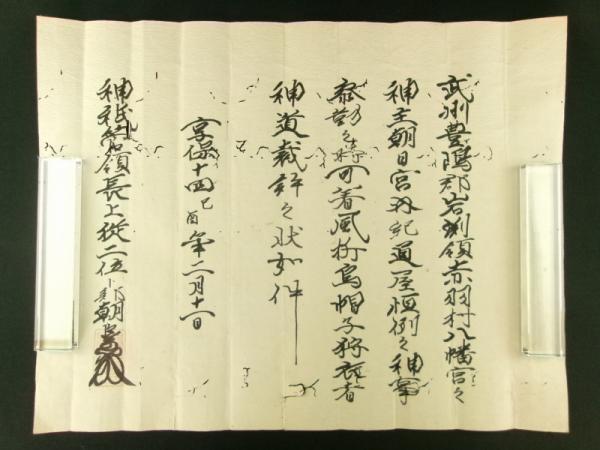 武州豊嶋郡岩渕領赤羽村八幡宮之
神主朝日宮 紀道屋恒例之神事
参勤之時可着風折烏帽子狩衣者
神道裁許之状如件
享保十四己酉年二月十一日
神祇管領長上従二位卜部朝臣